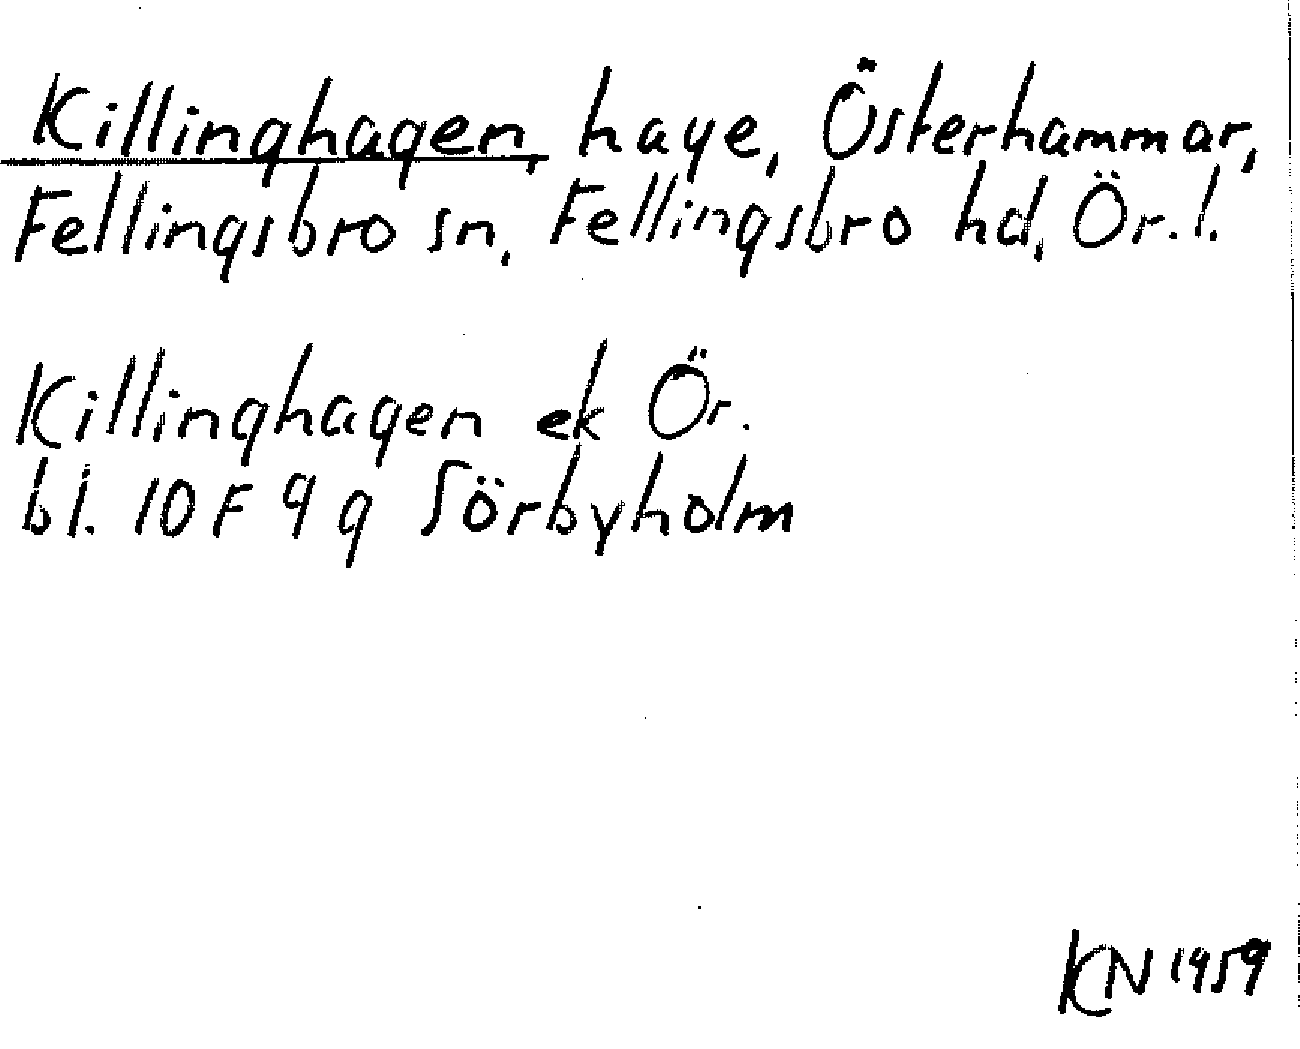 Killinghagen, hage, Österhammar,
Fellingsbro sn, Fellingsbro hd, Ör. l.
Killinghagen ek Ör.
bl. 10F 9g Sörbyholm
KN 1959